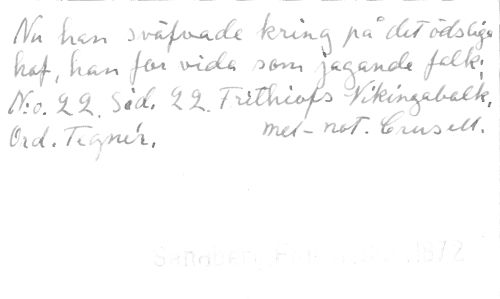 Nu han sväfvade kring på det ödsliga
haf, han for vida som jagande falk,
N:o. 22. Sid. 22. Frithiofs Vikingabalk,
Ord. Tegnér. mel-not. Crusell.
Sandberg 1872